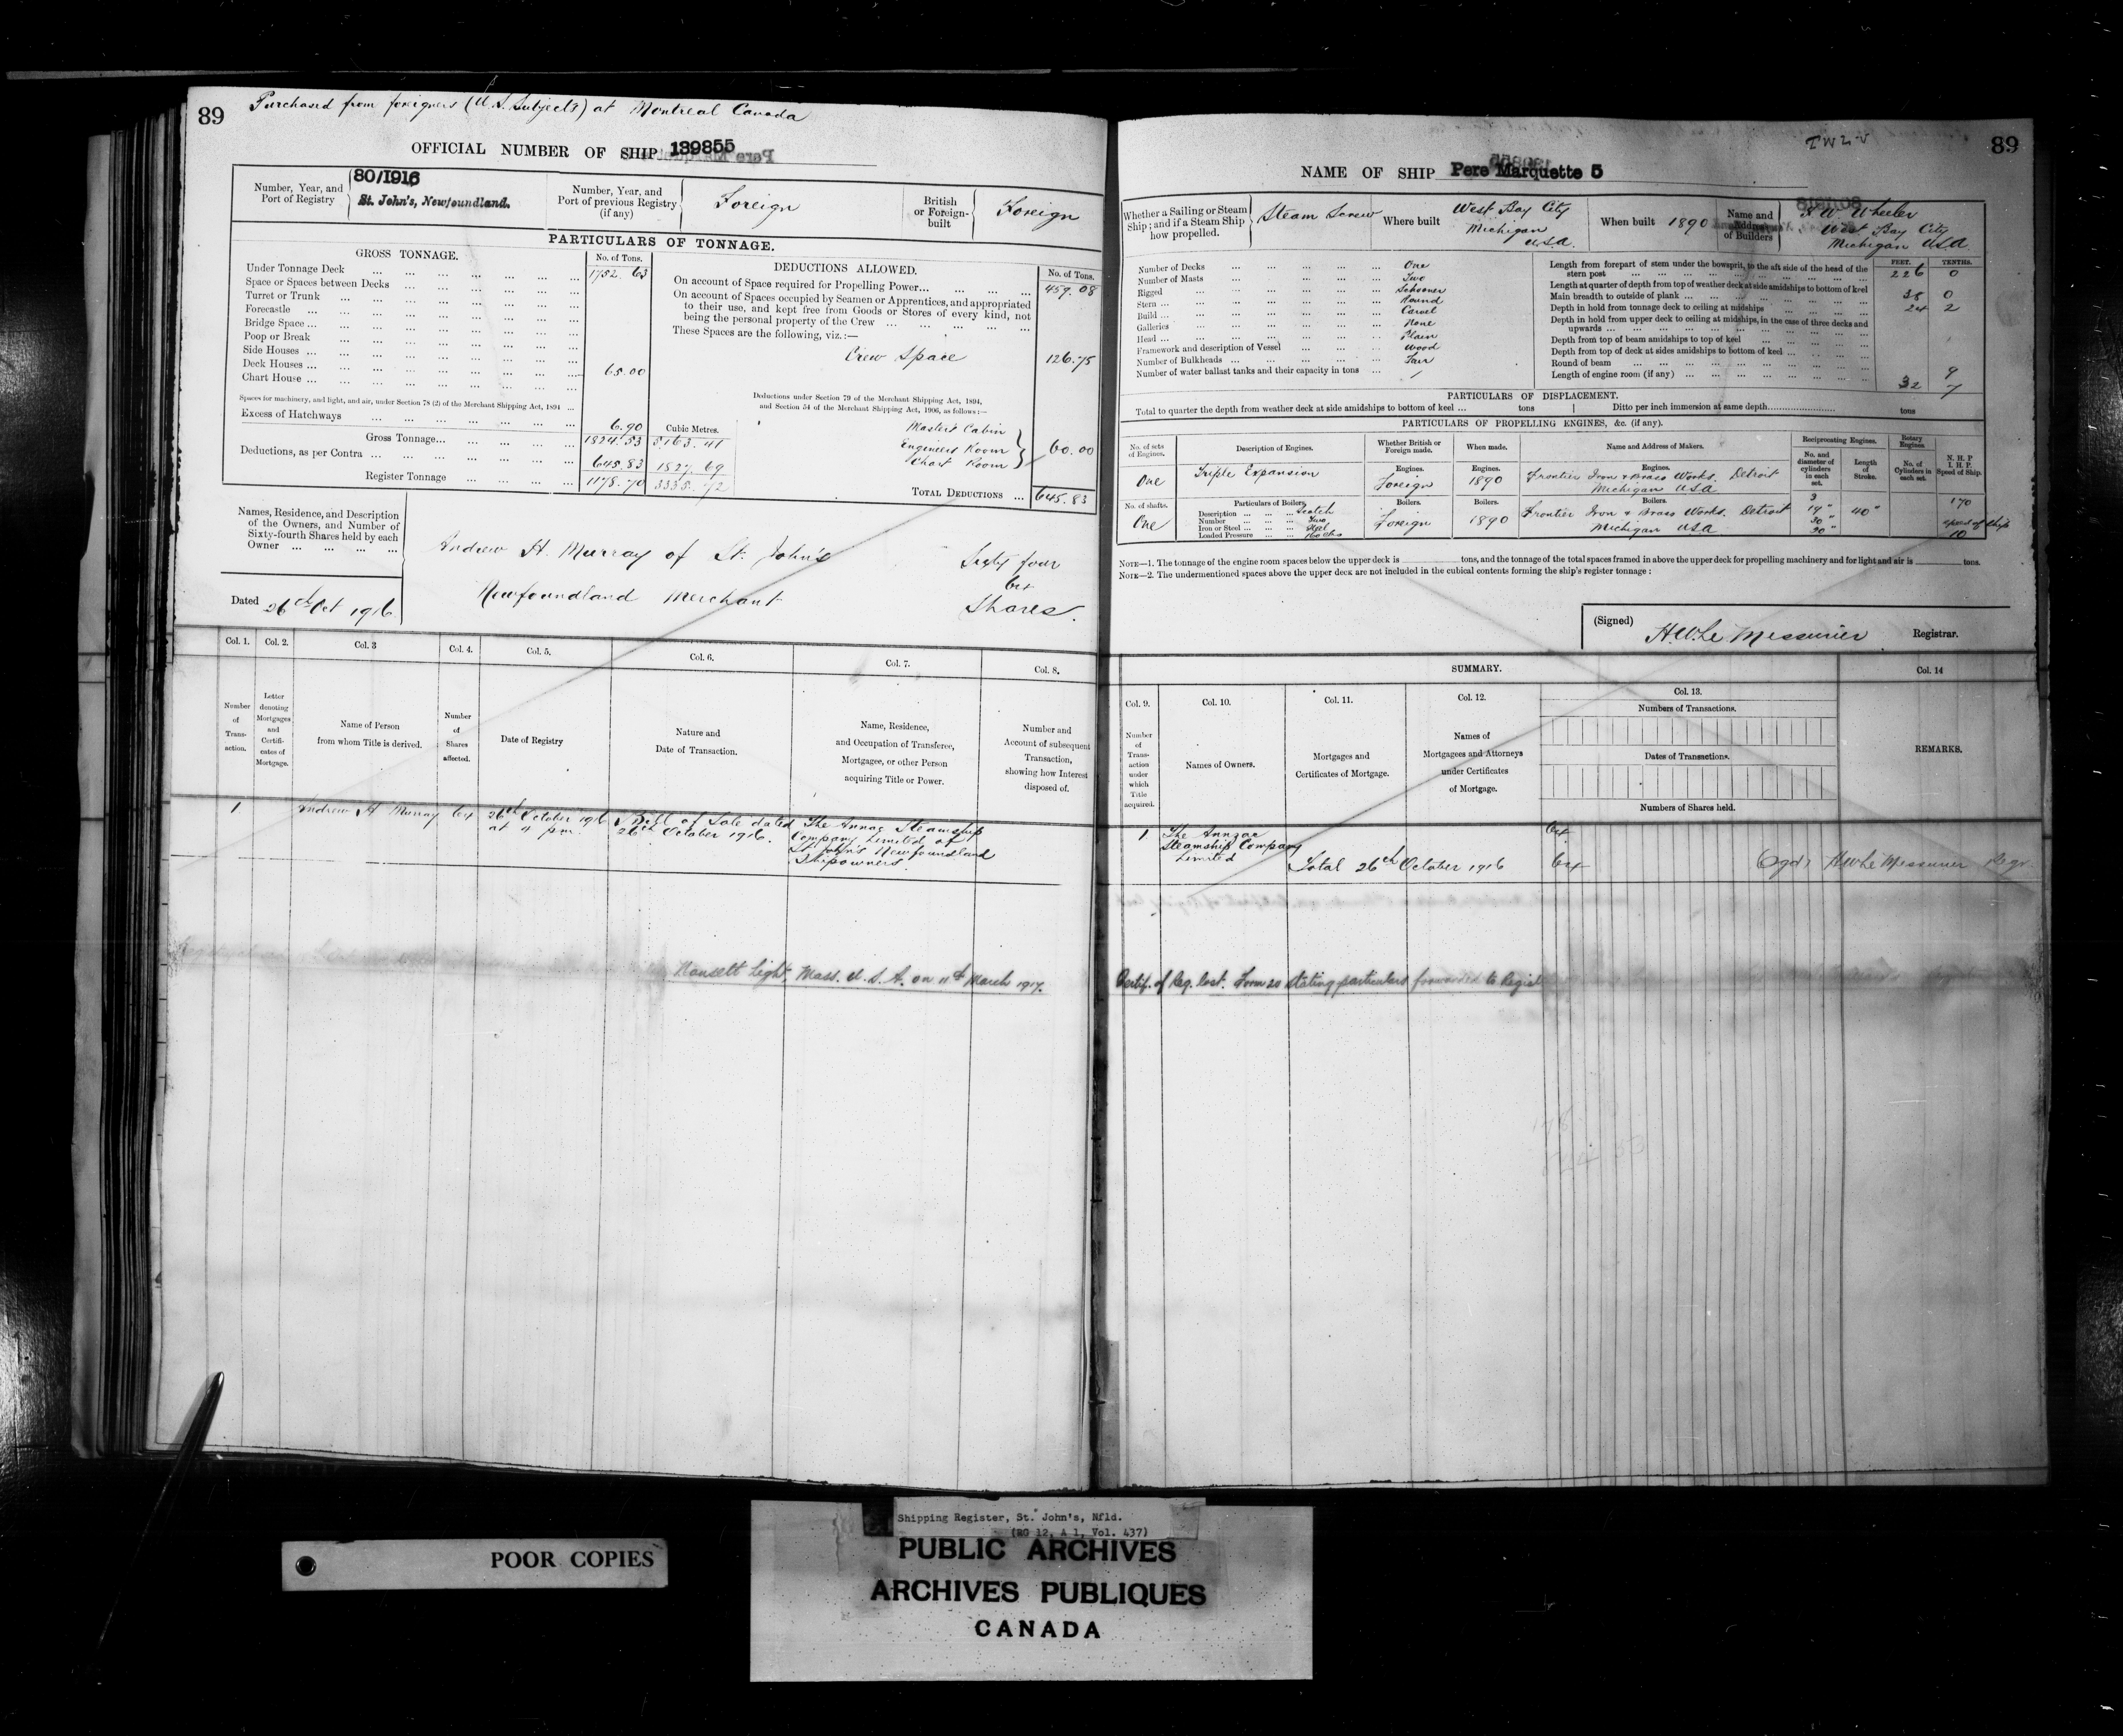 89
Purchased from foreigners (U.S. Subjects) at Montreal Canada
OFFICIAL NUMBER OF SHIP 139855
Number, Year, and Port of Registry
80/1916
St. John's, Newfoundland.
Number, Year, and Port of previous Registry (if any)
Foreign
British or Foreign-built
Foreign
PARTICULARS OF TONNAGE.
GROSS TONNAGE.
No. of Tons.
Under Tonnage Deck 1752.63
Space or Spaces between Decks
Turret or Trunk
Forecastle
Bridge Space
Poop or Break
Side Houses
Deck Houses 65.00
Chart House
Spaces for machinery, and light, and air, under Section 78 (2) of the Merchant Shipping Act, 1894
Excess of Hatchways 6.90
Cubic Metres.
Gross Tonnage 1824.53 5163.41
Deductions, as per Contra 645.83 1827.69
Register Tonnage 1178.70 3335.72
DEDUCTIONS ALLOWED.
No. of Tons.
On account of Space required for Propelling Power 459.08
On account of Spaces occupied by Seamen or Apprentices, and appropriated
to their use, and kept free from Goods or Stores of every kind, not
being the personal property of the Crew
These Spaces are the following, viz.:—
Crew Space 126.75
Deductions under Section 79 of the Merchant Shipping Act, 1894,
and Section 54 of the Merchant Shipping Act, 1906, as follows:—
Masters Cabin
Engineers Room 60.00
Chart Room
TOTAL DEDUCTIONS 645.83
Names, Residence, and Description
of the Owners, and Number of
Sixty-fourth Shares held by each
Owner
Andrew H. Murray of St. John's
Newfoundland Merchant
Sixty four
64
Shares.
Dated 26th Oct 1916
Col. 1.
Col. 2.
Col. 3
Col. 4.
Col. 5.
Col. 6.
Col. 7.
Col. 8.
Number of Trans-action.
Letter denoting Mortgages and Certifi-cates of Mortgage.
Name of Person from whom Title is derived.
Number of Shares affected.
Date of Registry
Nature and Date of Transaction.
Name, Residence, and Occupation of Transferee, Mortgagee, or other Person acquiring Title or Power.
Number and Account of subsequent Transaction, showing how Interest disposed of.
1
Andrew H Murray
64
26th October 1916
at 4 pm
Bill of Sale dated
26th October 1916.
The Annac Steamship
Company Limited of
St John's Newfoundland
Shipowners
Nansett Light, Mass. U.S.A. on 11th March 1917.
89
NAME OF SHIP Pere Marquette 5
Whether a Sailing or Steam Ship; and if a Steam Ship how propelled.
Steam Screw
Where built
West Bay City
Michigan
USA.
When built 1890
Name and Address of Builders
Wheeler
West Bay City
Michigan USA.
Number of Decks One
Number of Masts Two
Rigged Schooner
Stern Round
Build Carvel
Galleries None
Head Plain
Framework and description of Vessel Wood
Number of Bulkheads
Number of water ballast tanks and their capacity in tons
FEET. TENTHS.
Length from forepart of stem under the bowsprit, to the aft side of the head of the
stern post 226 0
Length at quarter of depth from top of weather deck at side amidships to bottom of keel
Main breadth to outside of plank 38 0
Depth in hold from tonnage deck to ceiling at midships 24 2
Depth in hold from upper deck to ceiling at midships, in the case of three decks and
upwards
Depth from top of beam amidships to top of keel
Depth from top of deck at sides amidships to bottom of keel
Round of beam 9
Length of engine room (if any) 32 7
PARTICULARS OF DISPLACEMENT.
Total to quarter the depth from weather deck at side amidships to bottom of keel ... tons
Ditto per inch immersion at same depth tons
PARTICULARS OF PROPELLING ENGINES, &c. (if any).
No. of sets of Engines.
Description of Engines.
Whether British or Foreign made.
When made.
Name and Address of Makers.
Reciprocating Engines.
No. and diameter of cylinders in each set.
Length of Stroke.
Rotary Engines
No. of Cylinders in each set.
N. H. P
I. H. P.
Speed of Ship.
One
Triple Expansion
Engines.
Foreign
Engines.
1890
Engines.
Frontier Iron & Brass Works. Detroit
Michigan USA
No. of shafts.
One
Particulars of Boilers
Description Scotch
Number Two
Iron or Steel Steel
Loaded Pressure
Boilers.
Foreign
Boilers.
1890
Boilers.
Frontier Iron & Brass Works. Detroit
Michigan USA
3
19"
30"
40"
170
speed of ship
10
NOTE—1. The tonnage of the engine room spaces below the upper deck is tons, and the tonnage of the total spaces framed in above the upper deck for propelling machinery and for light and air is tons.
NOTE—2. The undermentioned spaces above the upper deck are not included in the cubical contents forming the ship's register tonnage:
(Signed) H.W. Le Messurier Registrar.
SUMMARY.
Col. 9.
Col. 10.
Col. 11.
Col. 12.
Col. 13.
Col. 14
Number of Trans-action under which Title acquired.
Names of Owners.
Mortgages and Certificates of Mortgage.
Names of Mortgagees and Attorneys under Certificates of Mortgage.
Numbers of Transactions.
Dates of Transactions.
Numbers of Shares held.
REMARKS.
1
The Annzac
Steamship Company
Limited
64
Total 26th October 1916 64
HW Le Messurier Regr.
Certif. of Reg. lost. Form 20 stating particulars forwarded to
POOR COPIES
Shipping Register, St. John's, Nfld.
(RG 12, A 1, Vol. 437)
PUBLIC ARCHIVES
ARCHIVES PUBLIQUES
CANADA